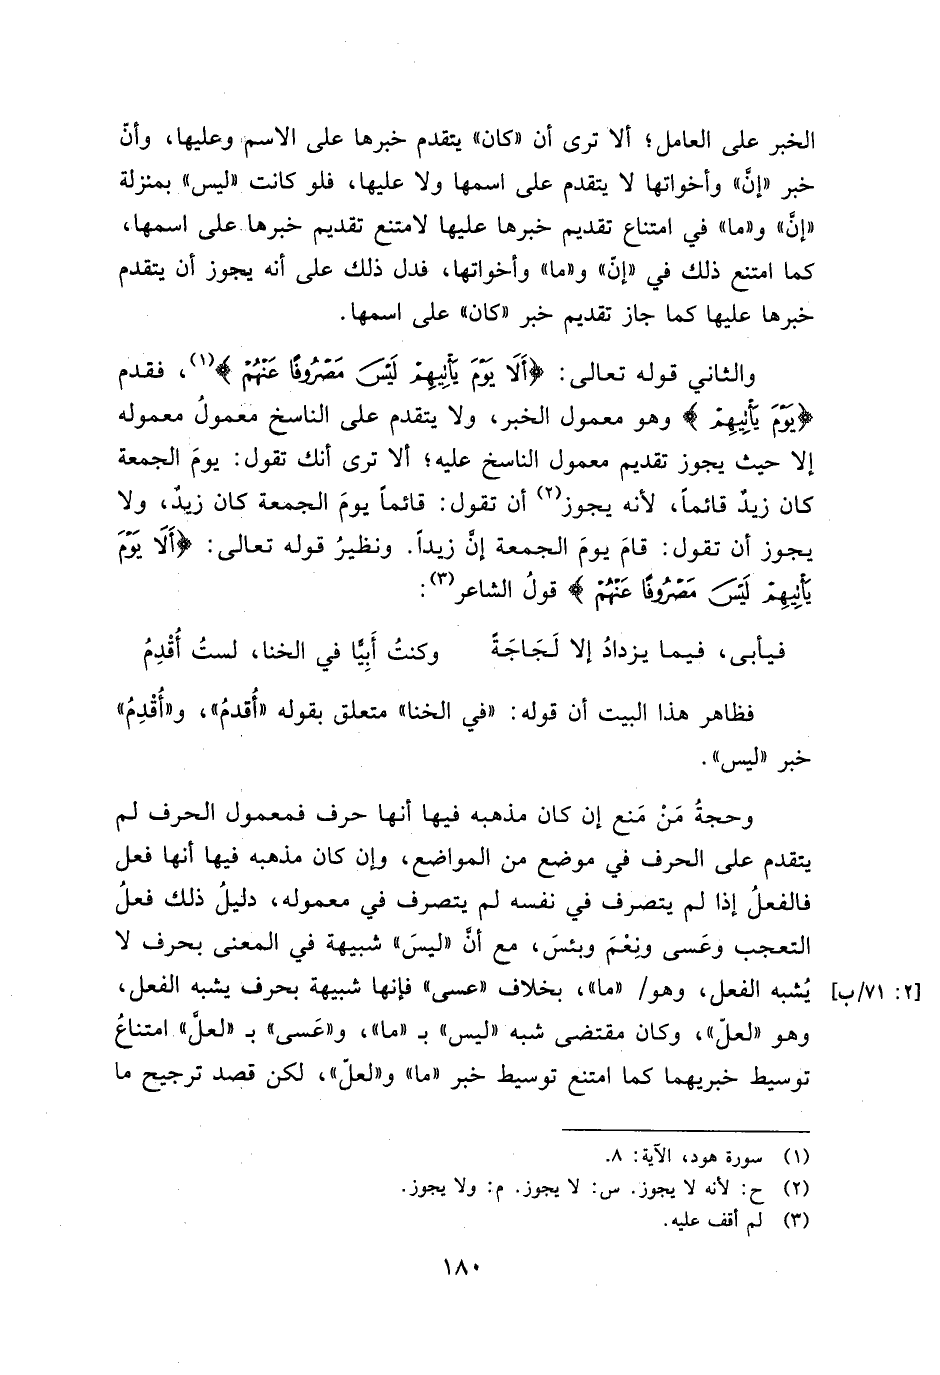 الخبر على العامل؛ ألا ترى أن «كان» يتقدم خبرها على الاسم وعليها، وأنّ
خبر «إنَّ» وأخواتها لا يتقدم على اسمها ولا عليها، فلو كانت «ليس» بمنزلة
«إنَّ» و«ما» في امتناع تقديم خبرها عليها لامتنع تقديم خبرها على اسمها،
كما امتنع ذلك في «إنّ» و«ما» وأخواتها، فدل ذلك على أنه يجوز أن يتقدم
خبرها عليها كما جاز تقديم خبر «كان» على اسمها.
والثاني قوله تعالى: ﴿أَلَا يَوْمَ يَأْتِيهِمْ لَيْسَ مَصْرُوفًا عَنْهُمْ﴾(١)، فقدم
﴿يَوْمَ يَأْتِيهِمْ﴾ وهو معمول الخبر، ولا يتقدم على الناسخ معمولُ معموله
إلا حيث يجوز تقديم معمول الناسخ عليه؛ ألا ترى أنك تقول: يومَ الجمعة
كان زيدٌ قائماً، لأنه يجوز(٢) أن تقول: قائماً يومَ الجمعة كان زيدٌ، ولا
يجوز أن تقول: قامَ يومَ الجمعة إنَّ زيداً. ونظيرُ قوله تعالى: ﴿أَلَا يَوْمَ
يَأْتِيهِمْ لَيْسَ مَصْرُوفًا عَنْهُمْ﴾ قولُ الشاعر(٣):
فيأبى، فيما يزدادُ إلا لَجَاجَةً وكنتُ أَبِيًّا في الخنا، لستُ أُقْدِمُ
فظاهر هذا البيت أن قوله: «في الخنا» متعلق بقوله «أُقدمُ»، و«أُقْدِمُ»
خبر «ليس».
وحجةُ مَنْ مَنع إن كان مذهبه فيها أنها حرف فمعمول الحرف لم
يتقدم على الحرف في موضع من المواضع، وإن كان مذهبه فيها أنها فعل
فالفعلُ إذا لم يتصرف في نفسه لم يتصرف في معموله، دليلُ ذلك فعلُ
التعجب وعَسى ونِعْمَ وبئسَ، مع أنَّ «ليسَ» شبيهة في المعنى بحرف لا
يُشبه الفعل، وهو/ «ما»، بخلاف «عسى» فإنها شبيهة بحرف يشبه الفعل، [٢: ٧١/ب]
وهو «لعلّ»، وكان مقتضى شبه «ليس» بـ «ما»، و«عَسى» بـ «لعلَّ» امتناعُ
توسيط خبريهما كما امتنع توسيط خبر «ما» و«لعلّ»، لكن قصد ترجيح ما
(١) سورة هود، الآية: ٨.
(٢) ح: لأنه لا يجوز. س: لا يجوز. م: ولا يجوز.
(٣) لم أقف عليه.
١٨٠